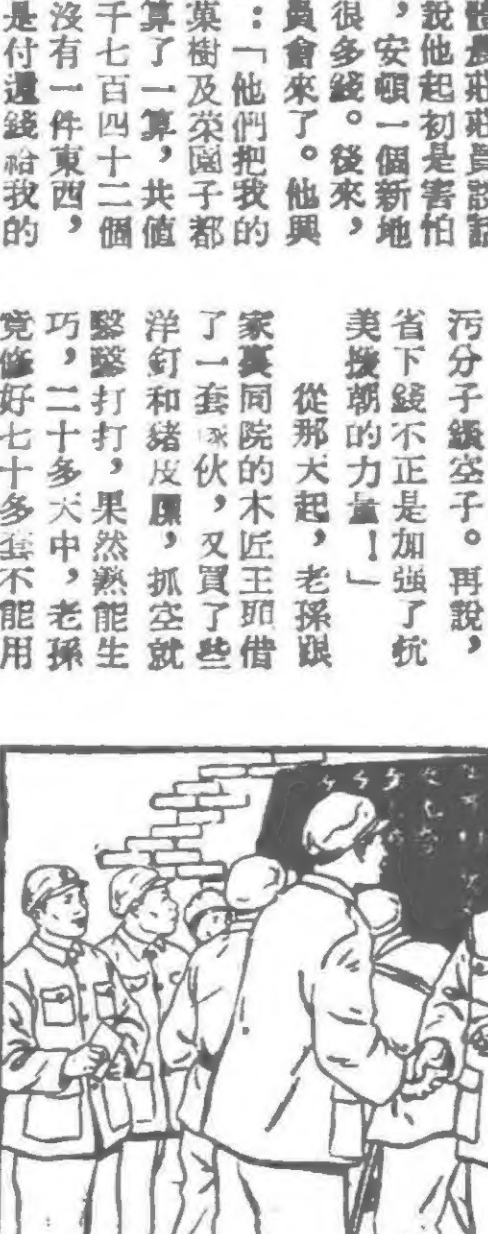 體農莊莊員談話
說他起初是害怕
，安頓一個新地
很多錢。後來，
員會來了。他興
：「他們把我的
菓樹及菜園子都
算了一算，共值
千七百四十二個
沒有一件東西，
是付還錢給我的
污分子鑽空子。再說，
省下錢不正是加強了抗
美援朝的力量！」
從那天起，老孫跟
家裏同院的木匠王師借
了一套傢伙，又買了些
洋釘和豬皮膘，抓空就
鑿鑿打打，果然熟能生
巧，二十多天中，老孫
竟修好七十多套不能用